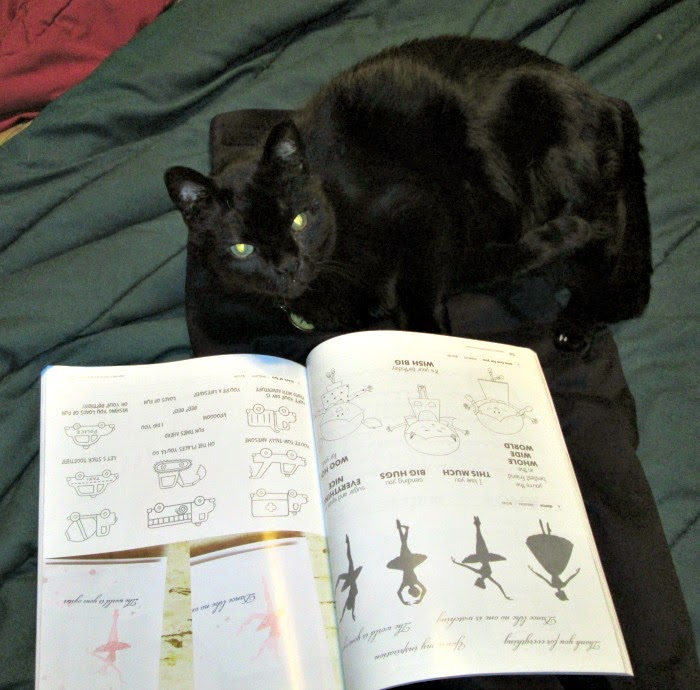 Thank you for everything
You're my inspiration
Dance like no one is watching
The world is your
you're the
bestest friend
in the
WHOLE
WIDE
WORLD
I love you
THIS MUCH
sending you
BIG HUGS
sugar and
EVERYTHING
NICE
for you
WOO HO
it's your birthday
WISH BIG
Dance like no on
The world is your oyster
YOU'RE TOW-TALLY AWESOME
OH THE PLACES YOU'LL GO
LET'S STICK TOGETHER!
FUN TIMES AHEAD
I DIG YOU
VROOOOM
BEEP BEEP
YOUR DAY IS
FILLED WITH ADVENTURE
YOU'RE A LIFESAVER!
LOADS OF FUN
WISHING YOU LOADS OF FUN
ON YOUR BIRTHDAY!
POLICE